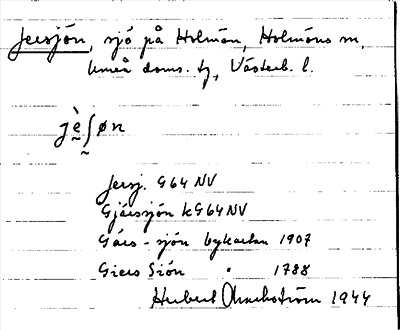 Jersjön, sjö på Holmön, Holmöns sn,
Umeå doms. tg, Västerb. l.
jḛ̀ʃ̰øn
Jersj. G64 NV
Gjärssjön kG64NV
Gärs-sjön bykartan 1907
Giers Siön " 1788
Herbert 1944